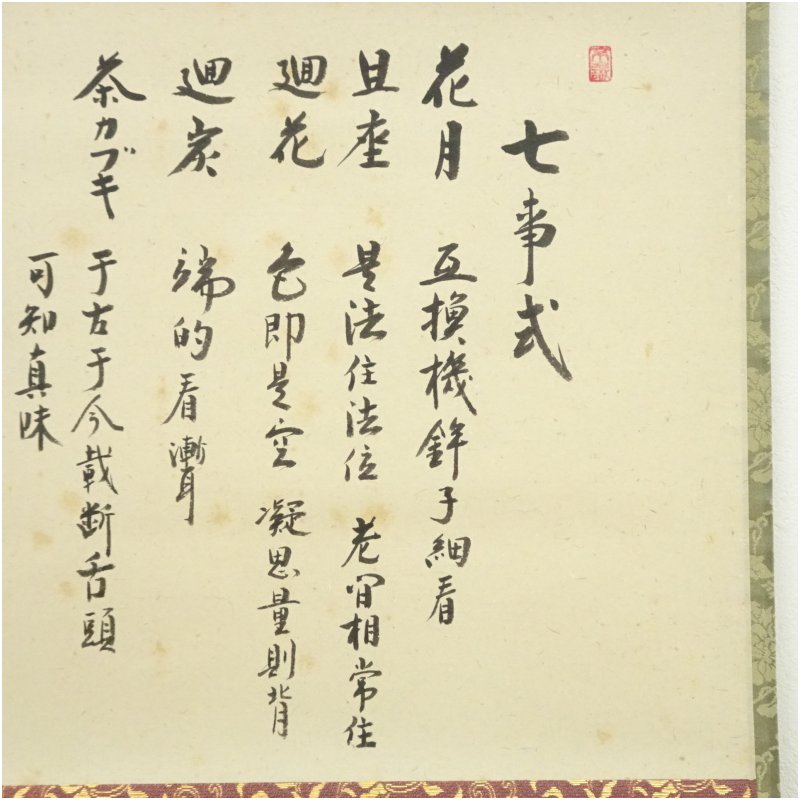 七事式
花月 互換機鉾子細看
且座 是法住法位 世間相常住
廻花 色即是空 凝思量則背
廻炭 端的看聻
茶カブキ 于古于今截断舌頭
可知真味